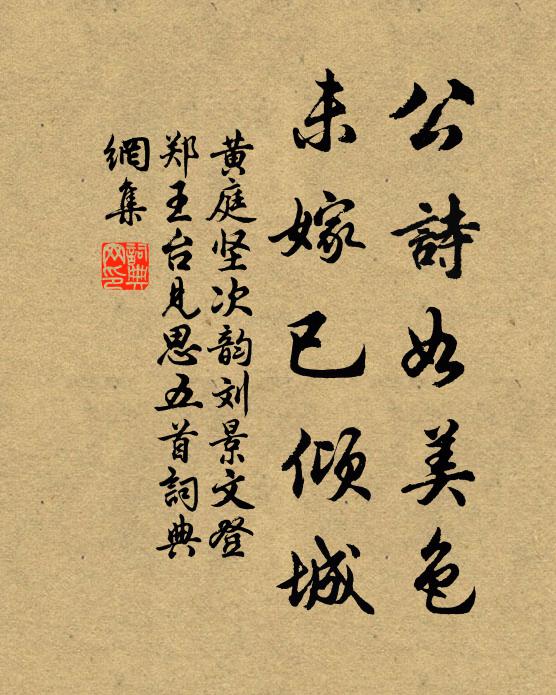 公詩如美色
未嫁已傾城
黄庭坚次韵刘景文登
郑王台见思五首詞典
網集
詞典
网印